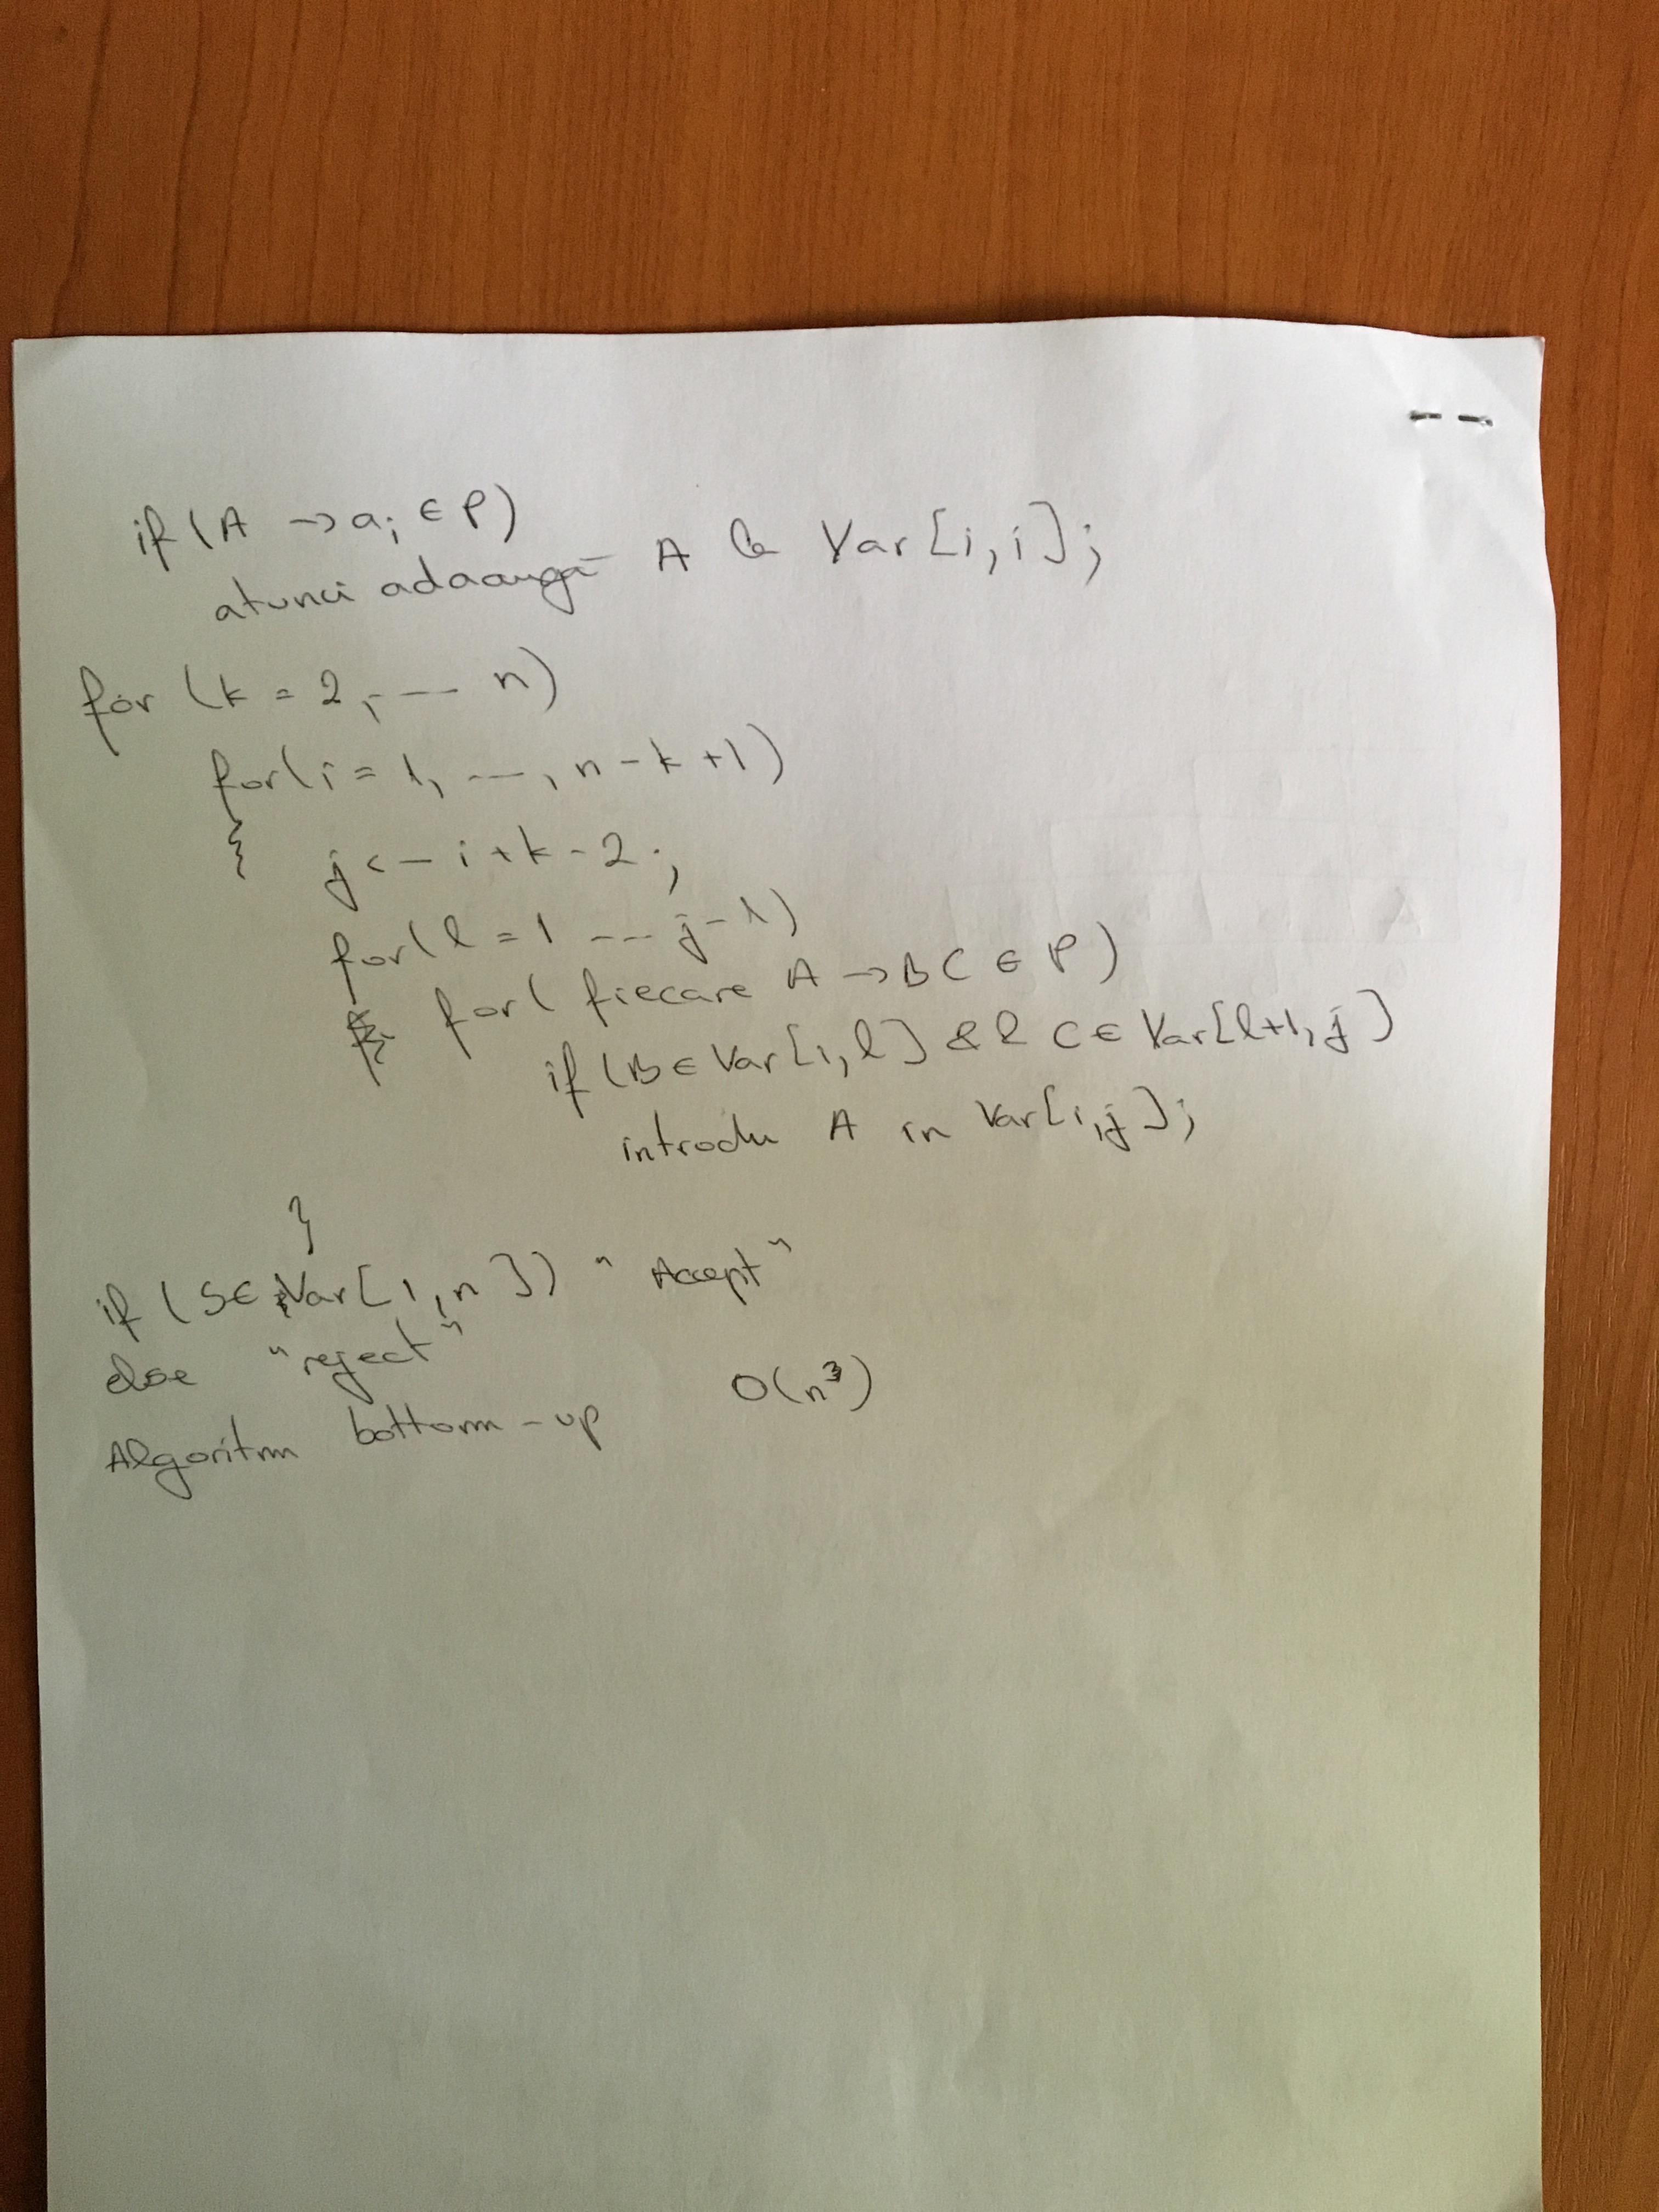 if (A -> ai ∈ P)
atunci adaaugă A la Var[i,i];
for (k = 2, --- n)
for (i = 1, ---, n - k + 1)
{
j <- i + k - 2;
for (l = 1 --- j - 1)
for ( fiecare A -> BC ∈ P)
if (B ∈ Var[i, l] && C ∈ Var[l+1, j]
introdu A in Var[i,j];
}
if (S ∈ Var[1, n]) "Accept"
else "reject"
Algoritm bottom-up O(n³)